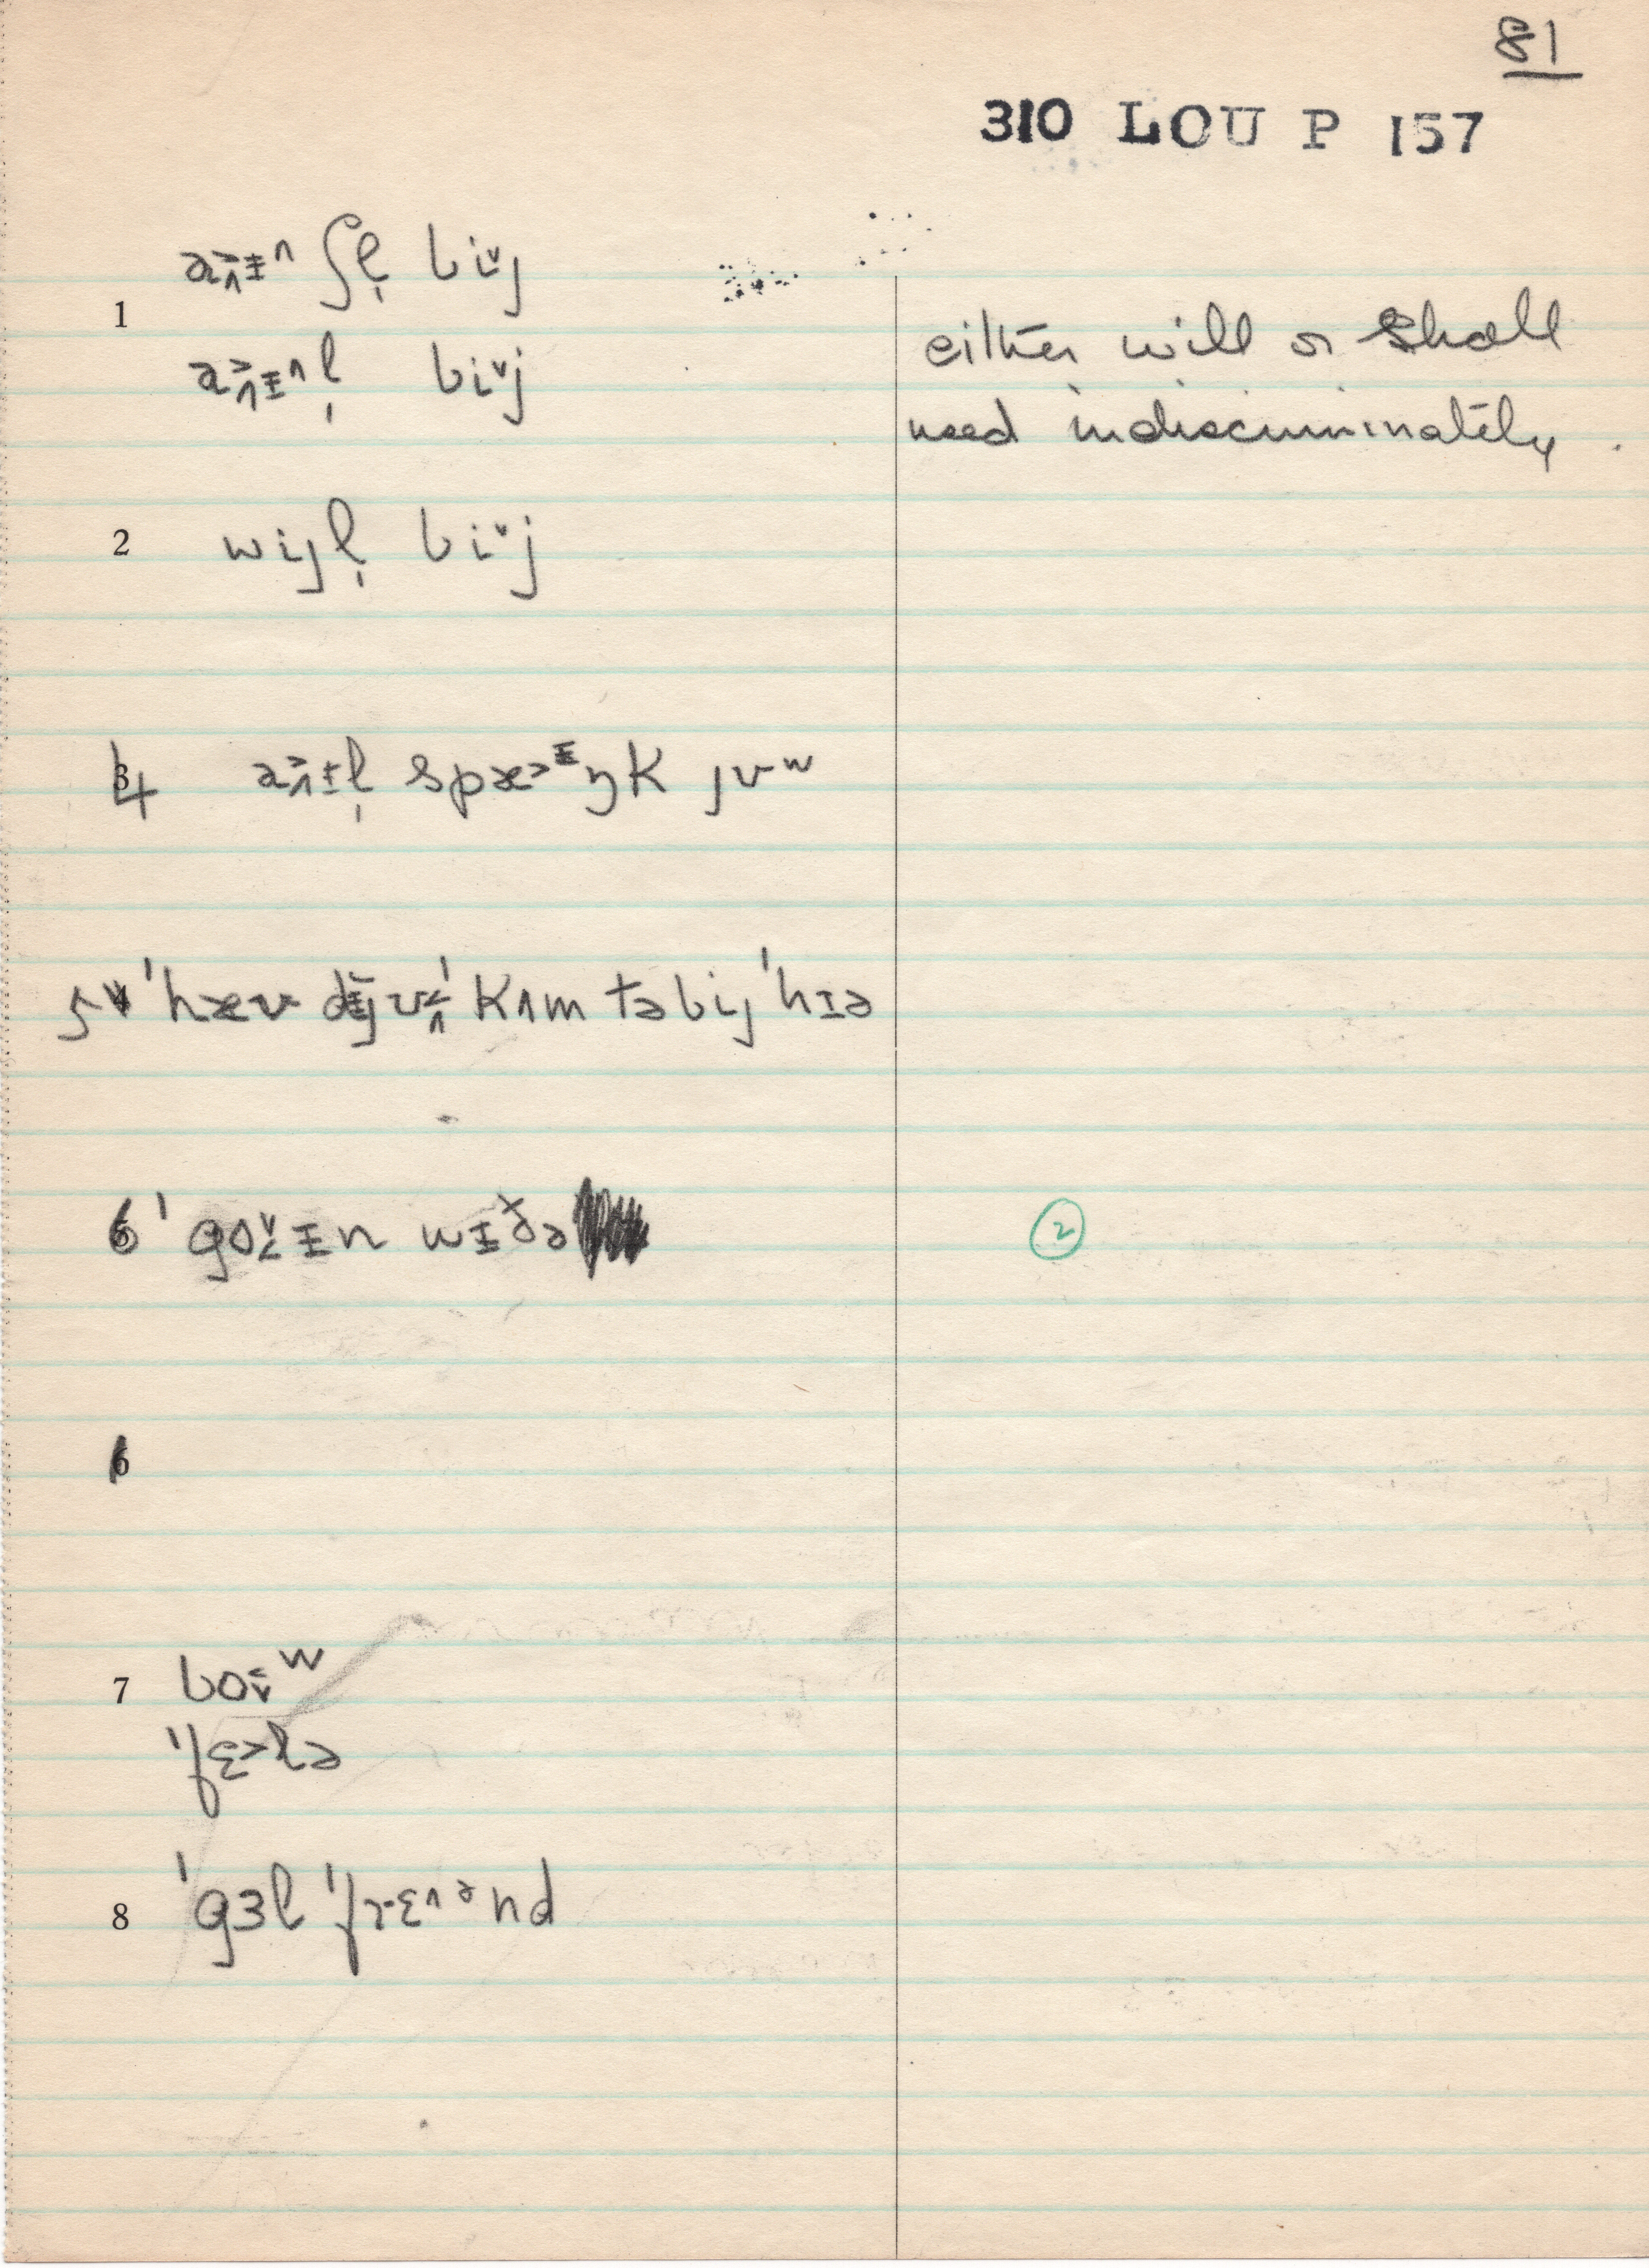 81
310 LOU P 157
1 a˃ᵻ^ ʃl̩ biˇj
a˃ᵻ^l̩ biˇj
either will or shall
used indiscriminately.
2 wijl̩ biˇj
4 a˃ᵻl̩ spæ˃ᵻŋk jʊʷ
5 ˈhæv dɨj ʊˈkʌm tə bij ˈhɪə
6 ˈgoᵻn wɪðə
2
6
7 boʷ
ˈfɛ˃lə
8 ˈgɜl ˈfrɛ^ᵊnd